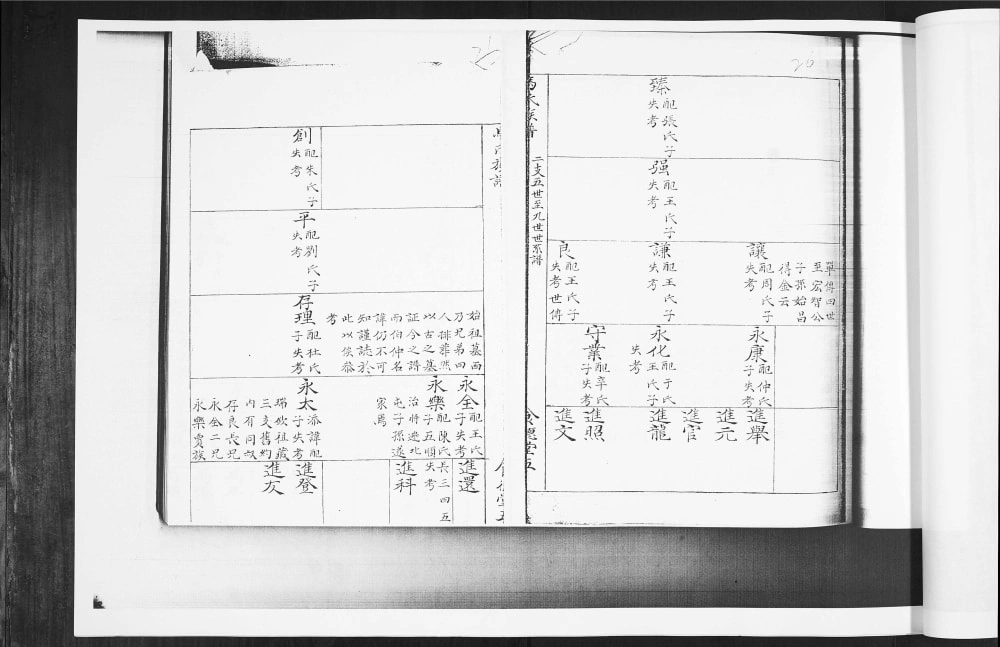 20
臻 配張氏子
失考
强 配王氏子
失考
讓 配周氏子
失考
單傳四世
至宏智公
子孫始昌
得金云
謙 配王氏子
失考
良 配王氏子
失考世傳
永康 配仲氏
子失考
永化 配于氏
王氏子
失考
守業 配辛氏
子失考
進舉
進元
進官
進龍
進照
進文
二支五世至九世世系譜
創 配朱氏子
失考
平 配劉氏子
失考
存理 配杜氏
子失考
始祖墓西
乃兄弟四
人排葬然
以古之墓
証今之譜
而伯仲名
諱仍不可
知謹誌於
此以俟叅
考
永全 配王氏
子失考
永樂 配陳氏
子五順
長三四五
失考
治將遷北
屯子孫遂
家焉
永太 添諱配
子失考
瑞欽祖藏
三支舊約
内有同叔
存良長兄
永全二兄
永樂賣族
進還
進科
進登
進友